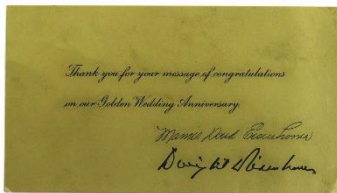 Thank you for your message of congratulations
on our Golden Wedding Anniversary.
Mamie Doud Eisenhower
Dwight D Eisenhower